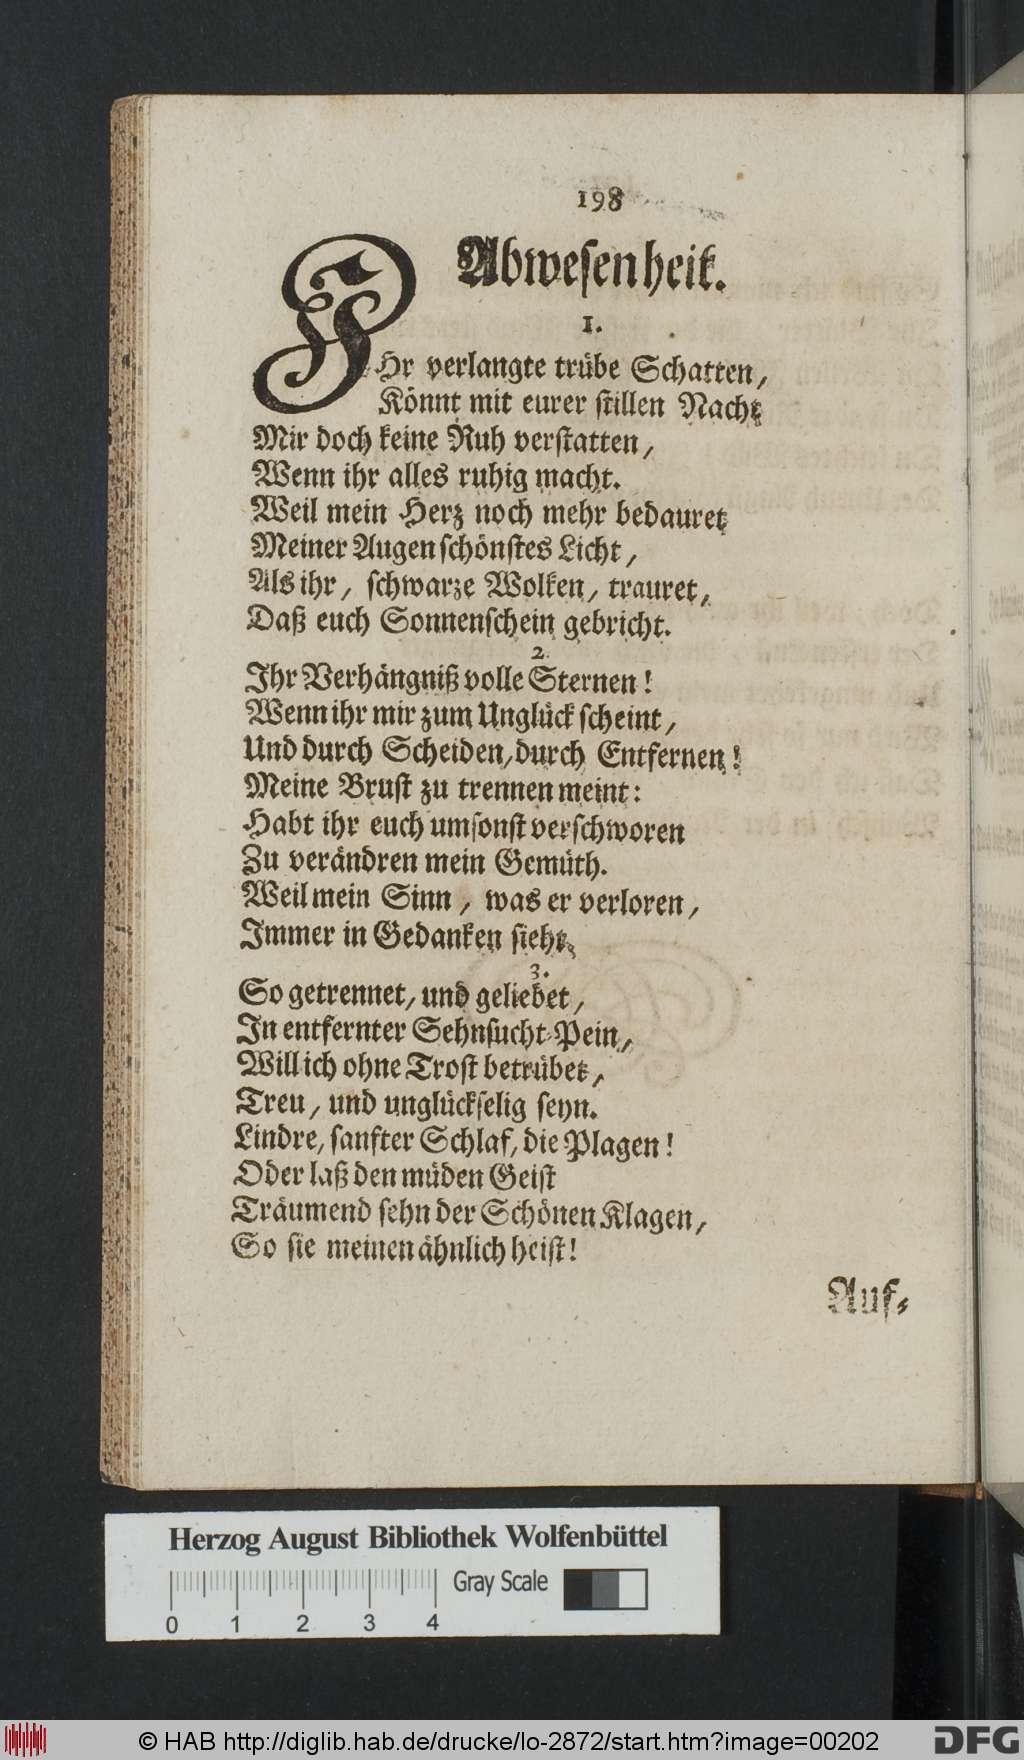 198
Abwesenheit.
1.
IHr verlangte trübe Schatten,
Könnt mit eurer stillen Nacht
Mir doch keine Ruh verstatten,
Wenn ihr alles ruhig macht.
Weil mein Herz noch mehr bedauret
Meiner Augen schönstes Licht,
Als ihr, schwarze Wolken, trauret,
Daß euch Sonnenschein gebricht.
2.
Ihr Verhängniß volle Sternen!
Wenn ihr mir zum Unglück scheint,
Und durch Scheiden, durch Entfernen!
Meine Brust zu trennen meint:
Habt ihr euch umsonst verschworen
Zu verändren mein Gemüth.
Weil mein Sinn, was er verloren,
Immer in Gedanken sieht.
3.
So getrennet, und geliebet,
In entfernter Sehnsucht-Pein,
Will ich ohne Trost betrübet,
Treu, und unglückselig seyn.
Lindre, sanfter Schlaf, die Plagen!
Oder laß den müden Geist
Träumend sehn der Schönen Klagen,
So sie meinen ähnlich heist!
Auf-
Herzog August Bibliothek Wolfenbüttel
Gray Scale
0 1 2 3 4
© HAB http://diglib.hab.de/drucke/lo-2872/start.htm?image=00202
DFG